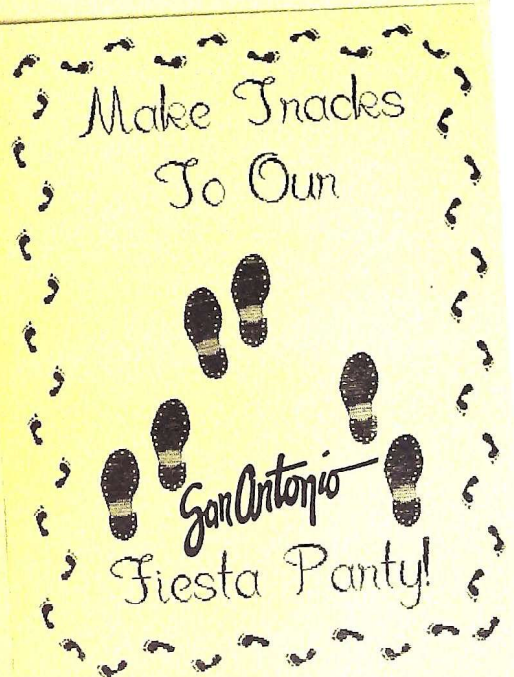 Make Tracks
To Our
San Antonio
Fiesta Party!